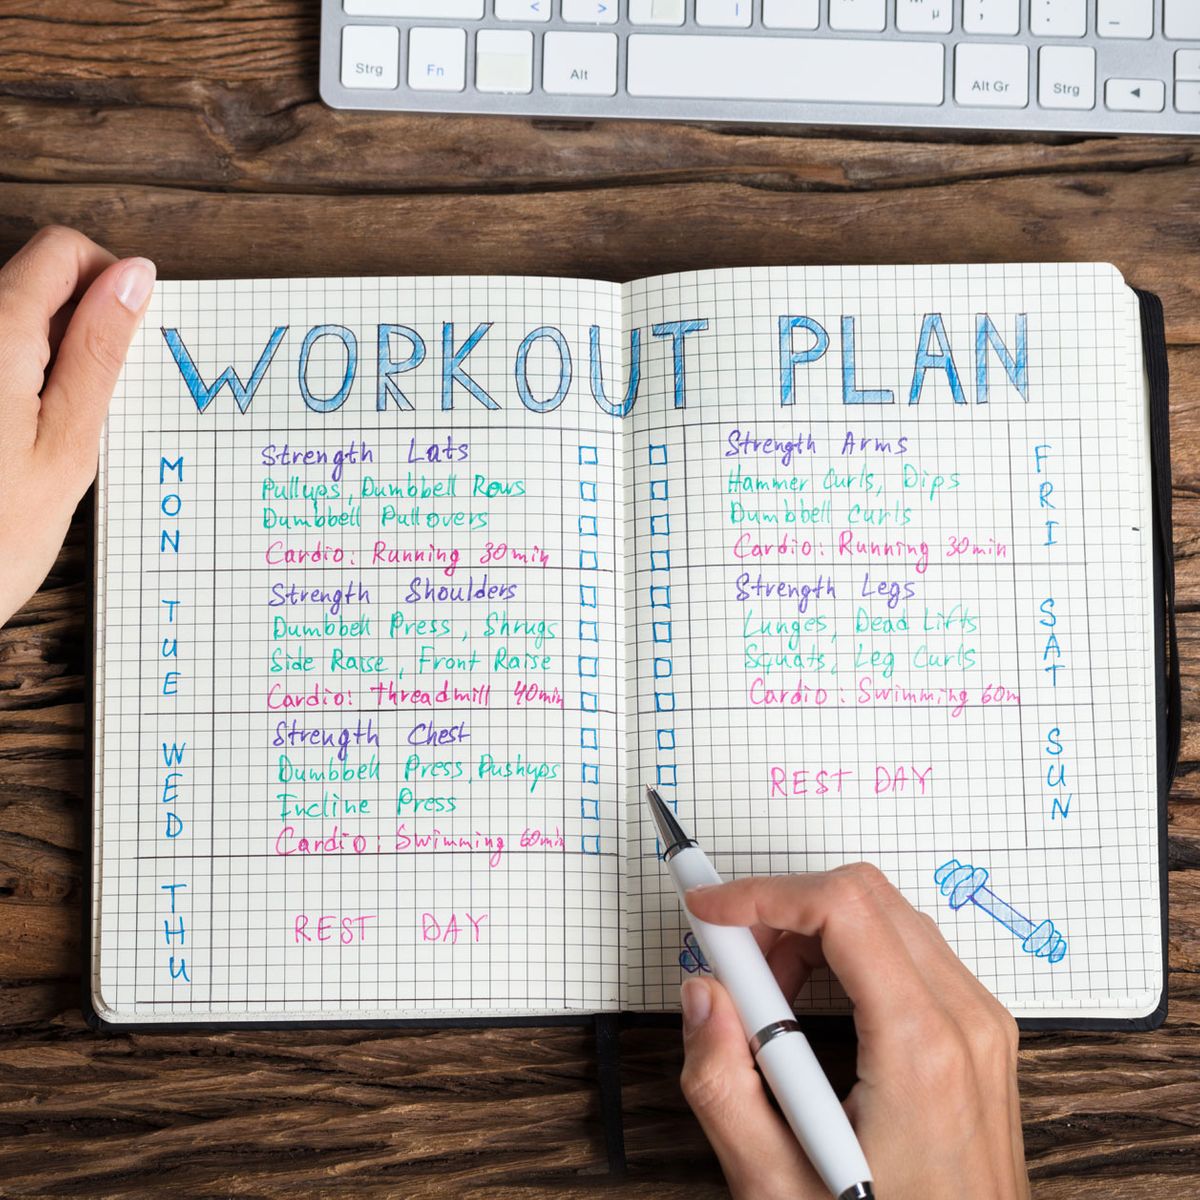 Strg Fn Alt Alt Gr Strg
WORKOUT PLAN
MON
Strength Lats
Pullups, Dumbbell Rows
Dumbbell Pullovers
Cardio: Running 30min
TUE
Strength Shoulders
Dumbbell Press, Shrugs
Side Raise, Front Raise
Cardio: threadmill 40min
WED
Strength Chest
Dumbbell Press, Pushups
Incline Press
Cardio: Swimming 60min
THU
REST DAY
FRI
Strength Arms
Hammer Curls, Dips
Dumbbell Curls
Cardio: Running 30min
SAT
Strength Legs
Lunges, Dead Lifts
Squats, Leg Curls
Cardio: Swimming 60m
SUN
REST DAY